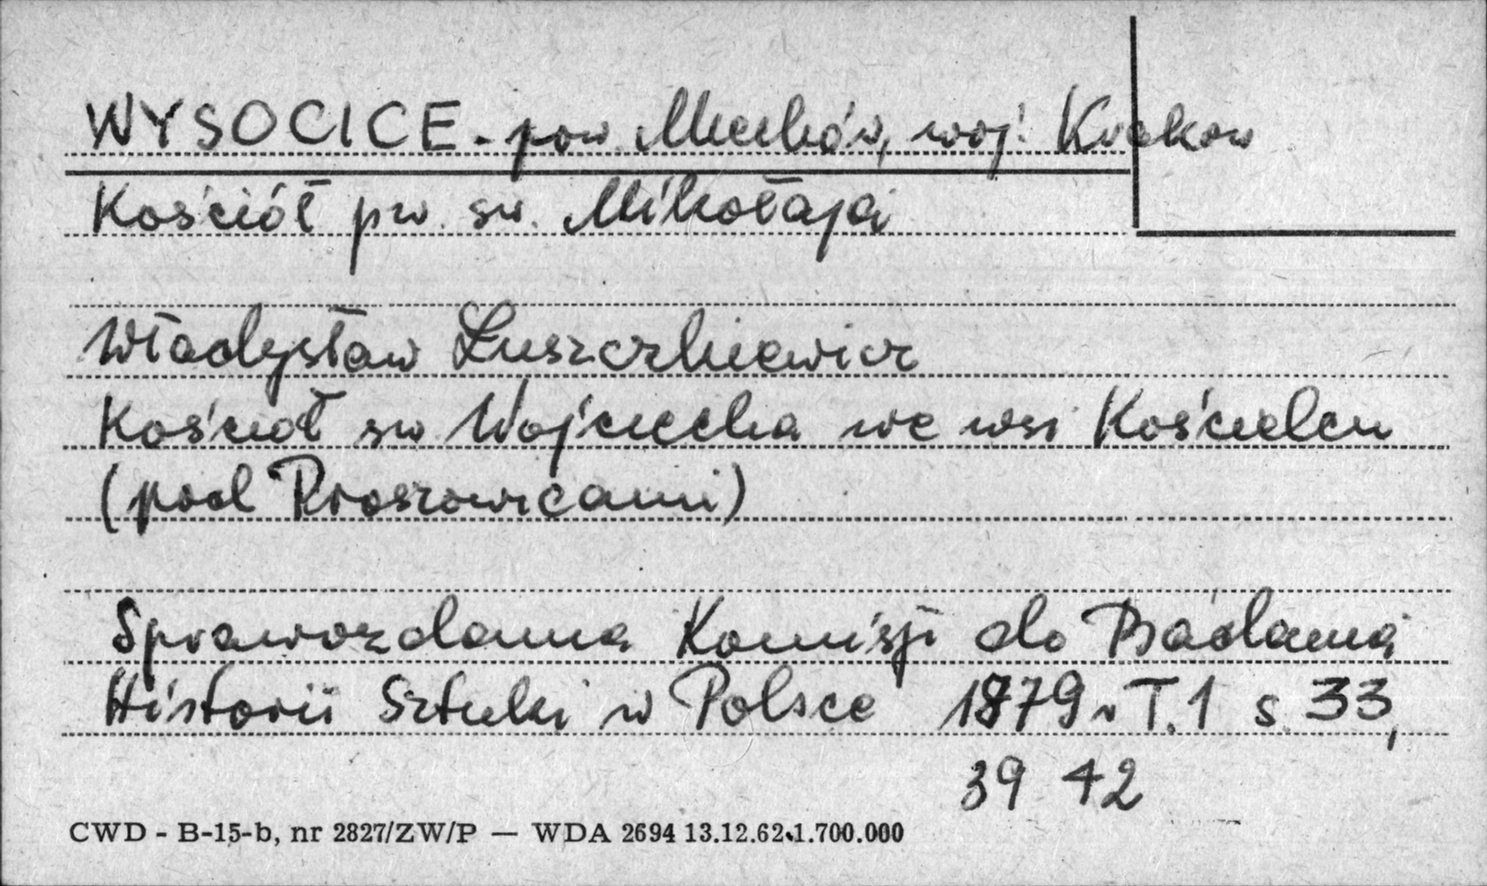 WYSOCICE - pow. Miechów, woj. Krakow
Kościół pw. sw. Mikołaja
Władysław Łuszczkiewicz
Kościół sw Wojciecha we wsi Kościelcu
(pod Proszowicami)
Sprawozdania Komisji do Badania
Historii Sztuki w Polsce 1879 r T.1 s. 33,
39 42
CWD - B-15-b, nr 2827/ZW/P — WDA 2694 13.12.62.1.700.000